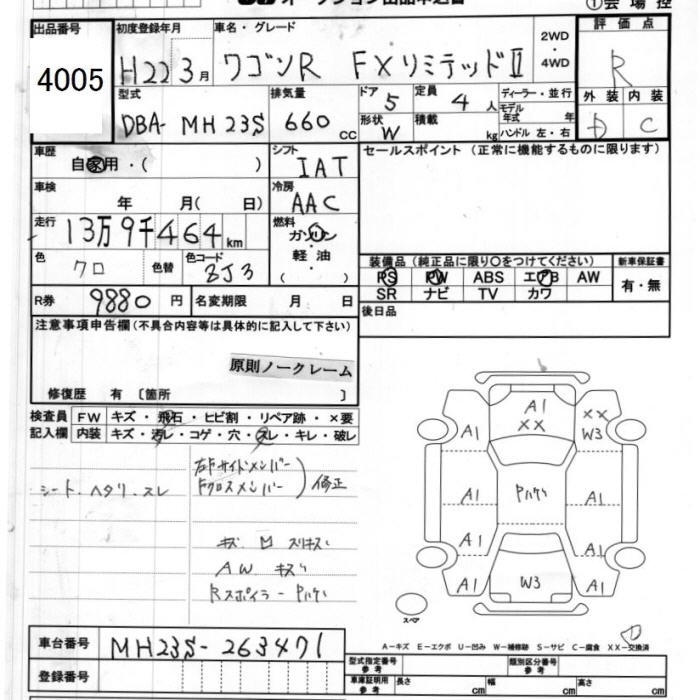 オークション出品申込書
①会場控
出品番号
4005
初度登録年月
H22 3月
車名・グレード
ワゴンR FXリミテッドⅡ
2WD
・
4WD
評価点
R
外装 内装
D C
型式
DBA- MH23S
排気量
660 cc
ドア 5
定員 4人
形状 W
積載 kg
ディーラー・並行
モデル
年式 年
ハンドル 左・右
車歴
自家用・( )
シフト
IAT
セールスポイント (正常に機能するものに限ります)
車検
年 月( 日)
冷房
AAC
走行
13万9千464km
燃料
ガソリン
・
軽油
( )
色
クロ
色替
色コード
ZJ3
装備品 (純正品に限り○をつけてください)
新車保証書
PS PW ABS エアB AW
SR ナビ TV カワ
有・無
R券 9880円
名変期限 月 日
後日品
注意事項申告欄(不具合内容等は具体的に記入して下さい)
原則ノークレーム
修復歴 有〔箇所 〕
検査員
記入欄
FW キズ・飛石・ヒビ割・リペア跡・×要
内装 キズ・汚レ・コゲ・穴・スレ・キレ・破レ
シート ヘタリ、スレ
右Fサイドメンバー
Fクロスメンバー
) 修正
キズ 凹 スリキズ
AW キズ
Rスポイラー Pハゲ
A1
XX
A1
XX
W3
A1
Pハゲ
A1
A1
A1
A1
W3
A1
スペア
A−キズ E−エクボ U−凹み W−補修跡 S−サビ C−腐食 XX−交換済
車台番号
MH23S-263471
登録番号
型式指定番号
参考
類別区分番号
参考
車庫証明用
参考
長さ cm
幅 cm
高さ cm